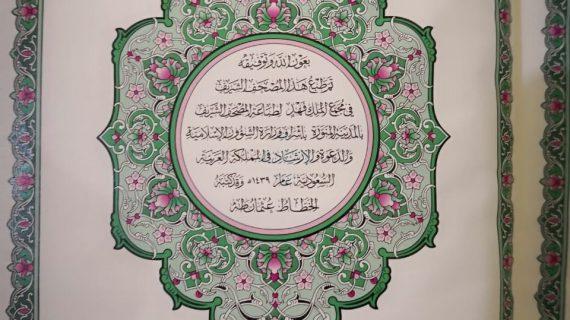 بعون الله وتوفيقه
تم طبع هذا المصحف الشريف
في مجمع الملك فهد لطباعة المصحف الشريف
بالمدينة المنورة بإشراف وزارة الشؤون الإسلامية
والدعوة والإرشاد في المملكة العربية
السعودية عام ١٤٣٩هـ وقد كتبه
الخطاط عثمان طه